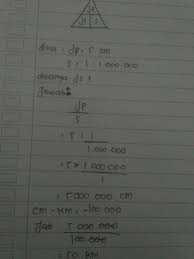 JP
JS S
diket : JP = 5 cm
S = 1 : 1 000 000
ditanya : JS ?
Jawab :
JP
S
= 5 : 1
1 000 000
= 5 x 1 000 000
1
= 5 000 000 cm
cm - km = 100 000
Jadi 5 000 000
100 000
= 50 km